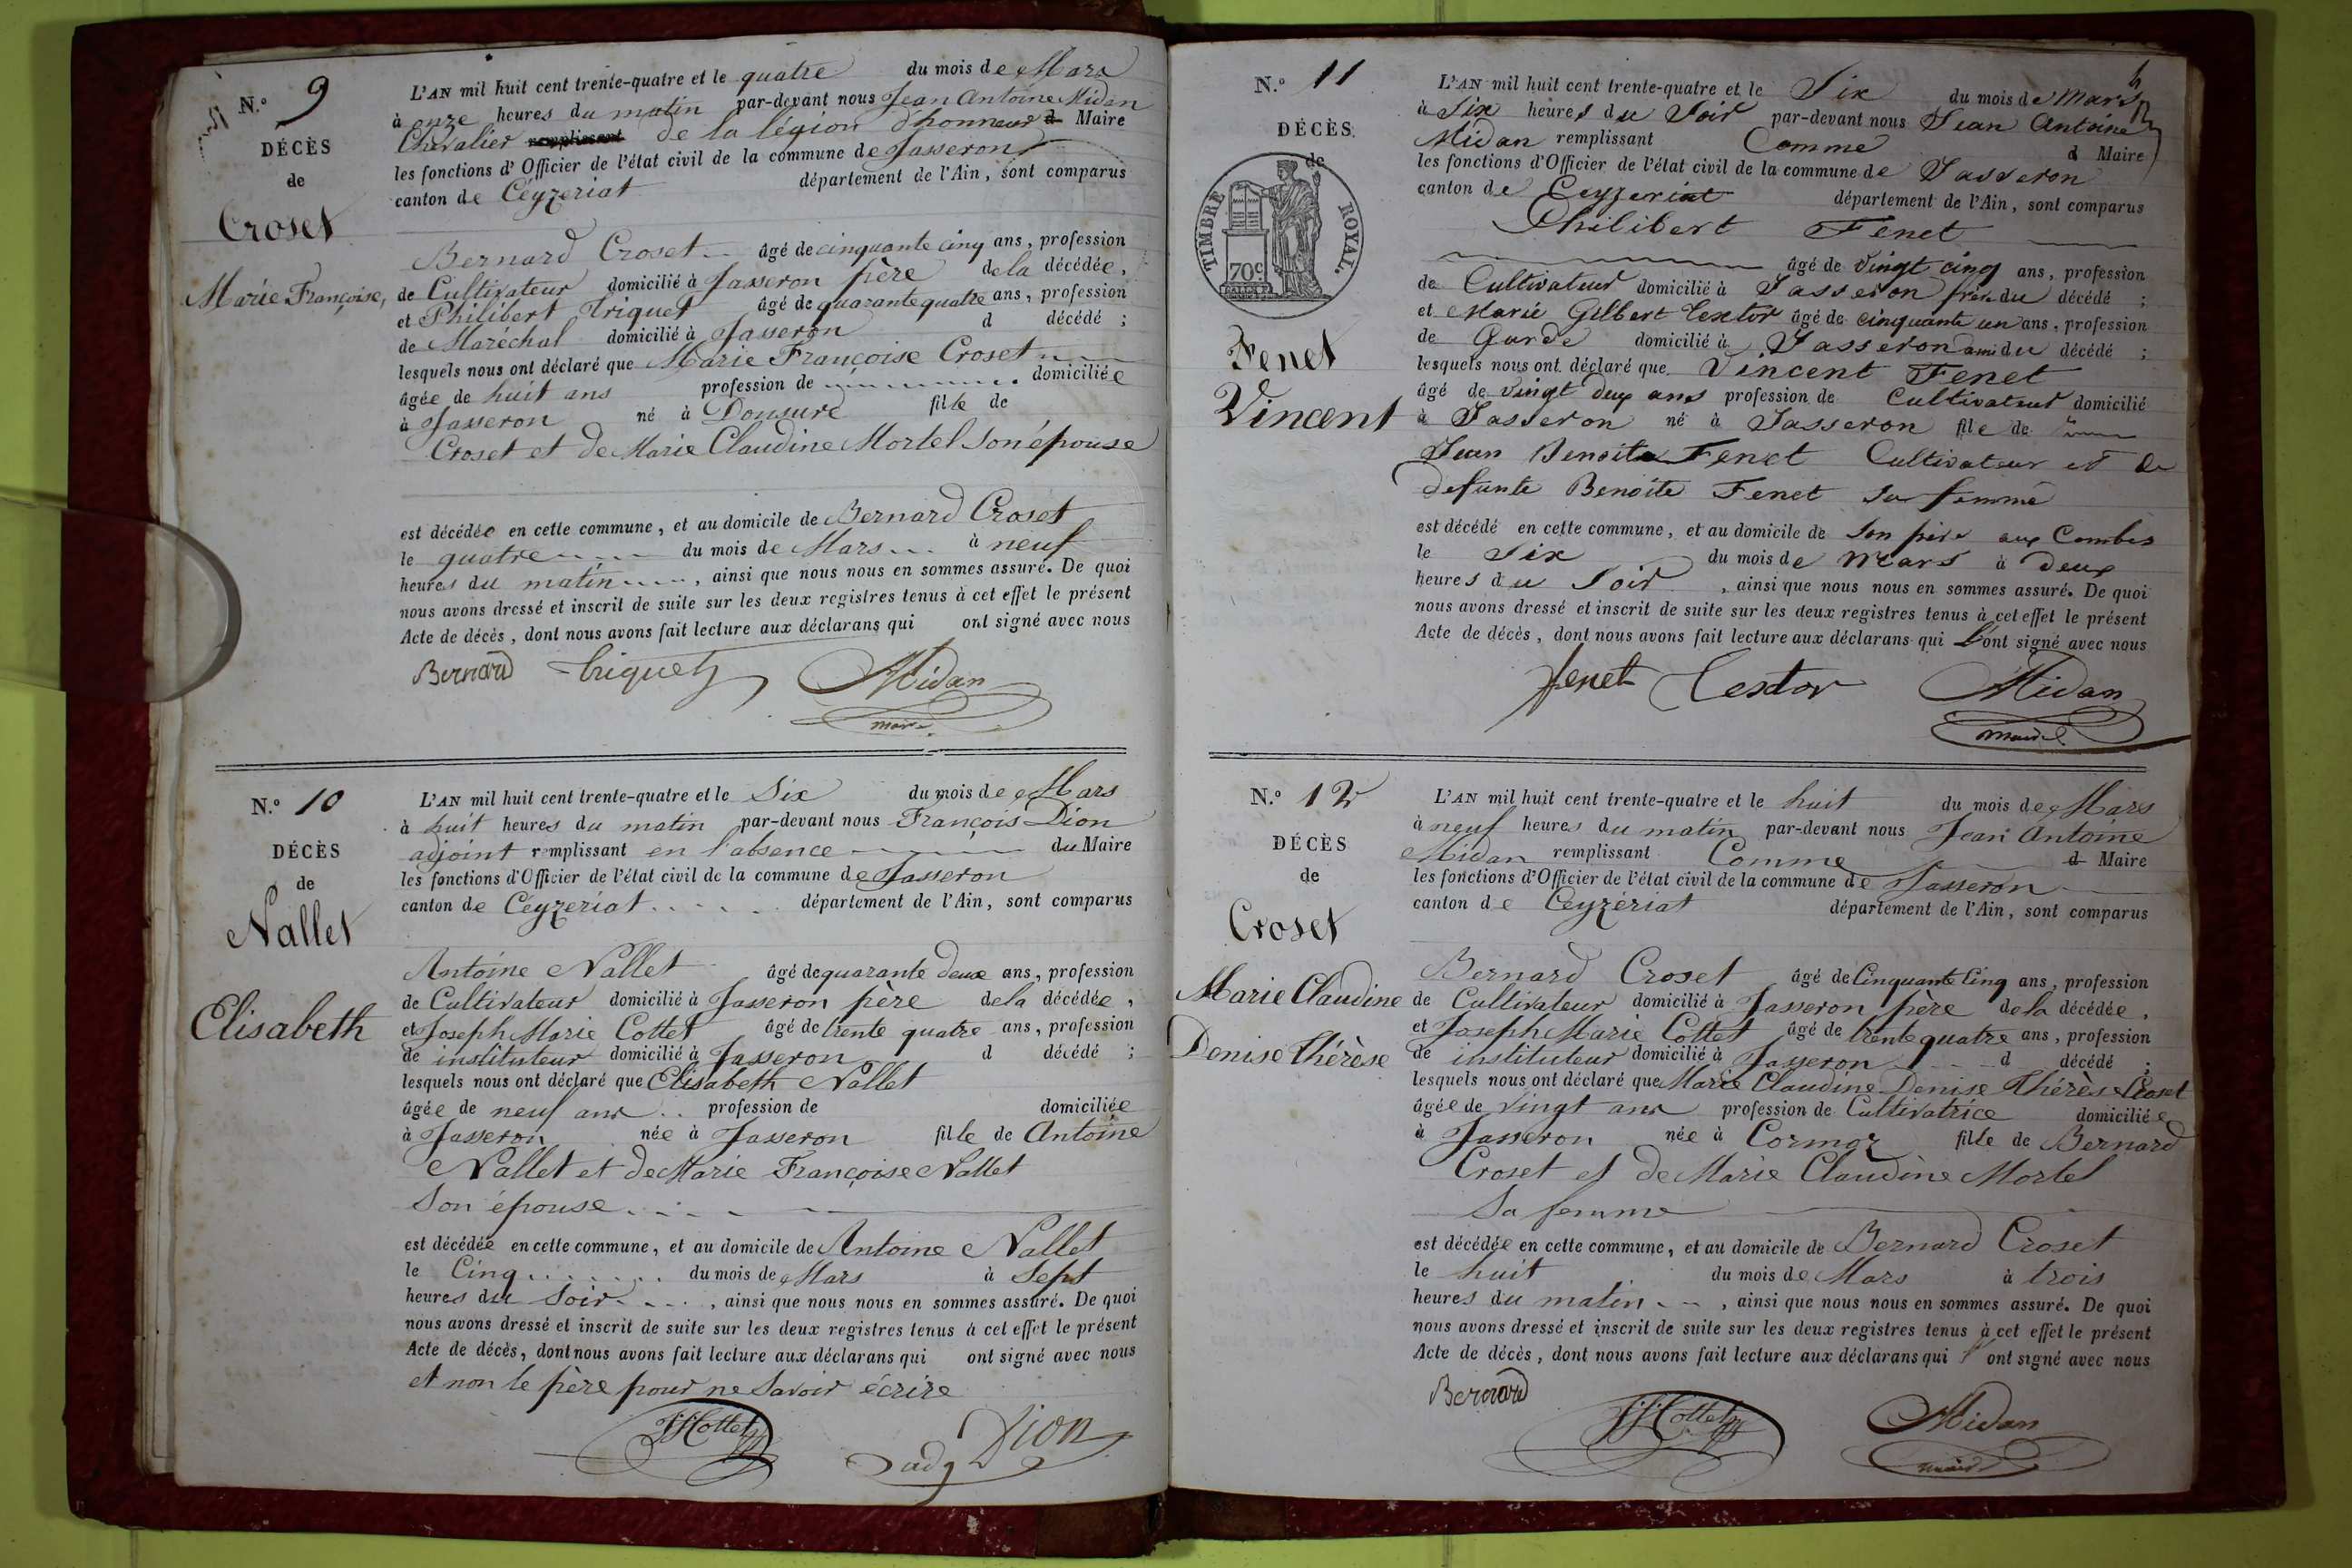 N.º 9
DÉCÈS
de
Croset
Marie Françoise,
L'AN mil huit cent trente-quatre et le quatre du mois de Mars
à onze heures du matin par-devant nous Jean Antoine Midan
Chevalier remplissant de la légion d'honneur d Maire
les fonctions d'Officier de l'état civil de la commune de Jasseron
canton de Céyzeriat département de l'Ain, sont comparus
Bernard Croset âgé de cinquante cinq ans, profession
de Cultivateur domicilié à Jasseron père de la décédée,
et Philibert Triquet âgé de quarante quatre ans, profession
de Maréchal domicilié à Jasseron d décédé ;
lesquels nous ont déclaré que Marie Françoise Croset
âgée de huit ans profession de domiciliée
à Jasseron né à Donsure fille de
Croset et de Marie Claudine Mortel son épouse
est décédée en cette commune, et au domicile de Bernard Croset
le quatre du mois de Mars à neuf
heures du matin, ainsi que nous nous en sommes assuré. De quoi
nous avons dressé et inscrit de suite sur les deux registres tenus à cet effet le présent
Acte de décès, dont nous avons fait lecture aux déclarans qui ont signé avec nous
Bernard Triquet Midan
maire
N.º 10
DÉCÈS
de
Nallet
Elisabeth
L'AN mil huit cent trente-quatre et le Six du mois de Mars
à huit heures du matin par-devant nous François Dion
adjoint remplissant en l'absence du Maire
les fonctions d'Officier de l'état civil de la commune de Jasseron
canton de Céyzeriat département de l'Ain, sont comparus
Antoine Nallet âgé de quarante deux ans, profession
de Cultivateur domicilié à Jasseron père de la décédée,
et Joseph Marie Cottet âgé de trente quatre ans, profession
de instituteur domicilié à Jasseron d décédé ;
lesquels nous ont déclaré que Elisabeth Nallet
âgée de neuf ans profession de domiciliée
à Jasseron née à Jasseron fille de Antoine
Nallet et de Marie Françoise Nallet
Son épouse
est décédée en cette commune, et au domicile de Antoine Nallet
le Cinq du mois de Mars à Sept
heures du Soir, ainsi que nous nous en sommes assuré. De quoi
nous avons dressé et inscrit de suite sur les deux registres tenus à cet effet le présent
Acte de décès, dont nous avons fait lecture aux déclarans qui ont signé avec nous
et non le père pour ne Savoir écrire
Cottet adj Dion
N.º 11
DÉCÈS
de
TIMBRE ROYAL.
70c
Fenet
Vincent
L'AN mil huit cent trente-quatre et le Six du mois de Mars
à Six heures du Soir par-devant nous Jean Antoine
Midan remplissant Comme d Maire
les fonctions d'Officier de l'état civil de la commune de Jasseron
canton de Ceyzeriat département de l'Ain, sont comparus
Philibert Fenet
âgé de vingt cinq ans, profession
de Cultivateur domicilié à Jasseron frère du décédé ;
et Marie Gilbert Textor âgé de cinquante un ans, profession
de Garde domicilié à Jasseron ami du décédé ;
lesquels nous ont déclaré que Vincent Fenet
âgé de vingt deux ans profession de Cultivateur domicilié
à Jasseron né à Jasseron fils de
Jean Benoit Fenet Cultivateur et de
defunte Benoite Fenet sa femme
est décédé en cette commune, et au domicile de son père aux Combes
le Six du mois de Mars à deux
heures du Soir, ainsi que nous nous en sommes assuré. De quoi
nous avons dressé et inscrit de suite sur les deux registres tenus à cet effet le présent
Acte de décès, dont nous avons fait lecture aux déclarans qui l'ont signé avec nous
fenet Textor Midan
maire
N.º 12
DÉCÈS
de
Croset
Marie Claudine
Denise Thérèse
L'AN mil huit cent trente-quatre et le huit du mois de Mars
à neuf heures du matin par-devant nous Jean Antoine
Midan remplissant Comme d Maire
les fonctions d'Officier de l'état civil de la commune de Jasseron
canton de Ceyzériat département de l'Ain, sont comparus
Bernard Croset âgé de Cinquante Cinq ans, profession
de Cultivateur domicilié à Jasseron père de la décédée,
et Joseph Marie Cottet âgé de trente quatre ans, profession
de instituteur domicilié à Jasseron d décédé ;
lesquels nous ont déclaré que Marie Claudine Denise Thérèse Croset
âgée de vingt ans profession de Cultivatrice domiciliée
à Jasseron née à Cormoz fille de Bernard
Croset et de Marie Claudine Mortel
Sa femme
est décédée en cette commune, et au domicile de Bernard Croset
le huit du mois de Mars à trois
heures du matin, ainsi que nous nous en sommes assuré. De quoi
nous avons dressé et inscrit de suite sur les deux registres tenus à cet effet le présent
Acte de décès, dont nous avons fait lecture aux déclarans qui l'ont signé avec nous
Bernard Cottet Midan
maire